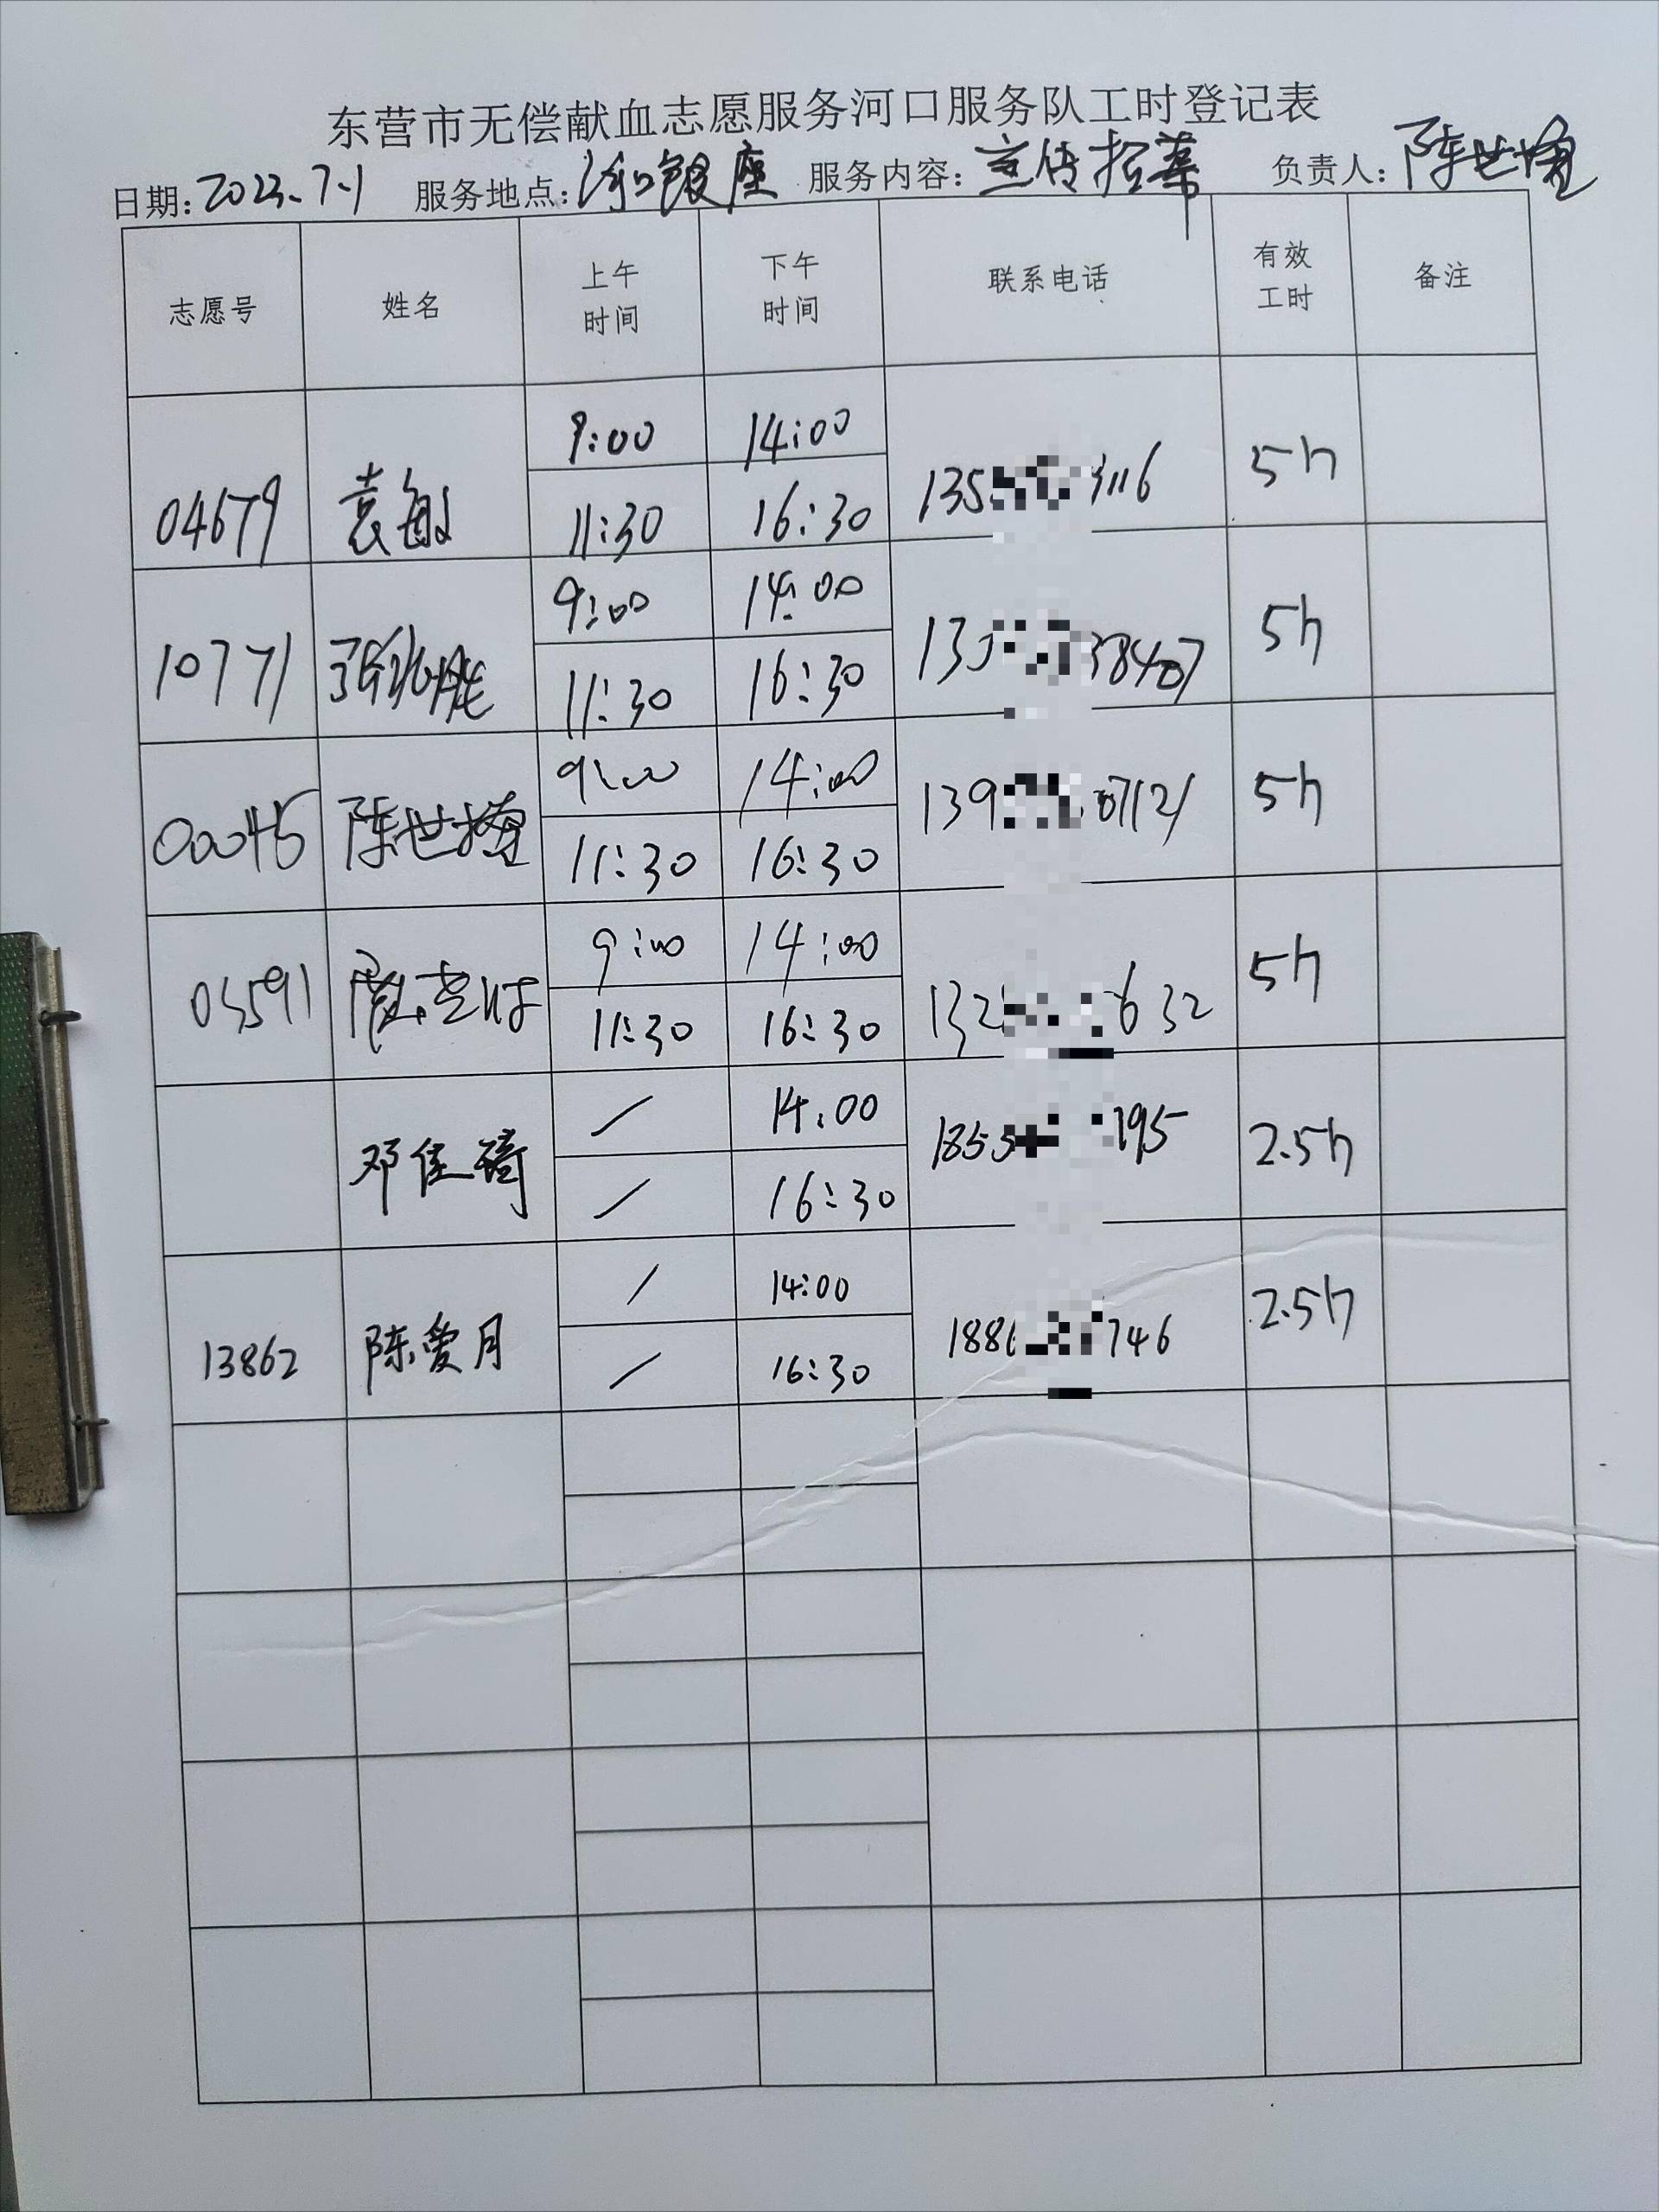 东营市无偿献血志愿服务河口服务队工时登记表
日期: 2023.7.1 服务地点: 河口银座 服务内容: 宣传招募 负责人: 陈世
志愿号 姓名 上午时间 下午时间 联系电话 有效工时 备注
04679 袁敏 9:00 14:00 135 3116 5h
11:30 16:30
10771 张 9:00 14:00 13 38407 5h
11:30 16:30
00045 陈世 9:00 14:00 139 07121 5h
11:30 16:30
03591 9:00 14:00 132 632 5h
11:30 16:30
邓佳琦 / 14:00 1855 195 2.5h
/ 16:30
13862 陈爱月 / 14:00 188 746 2.5h
/ 16:30